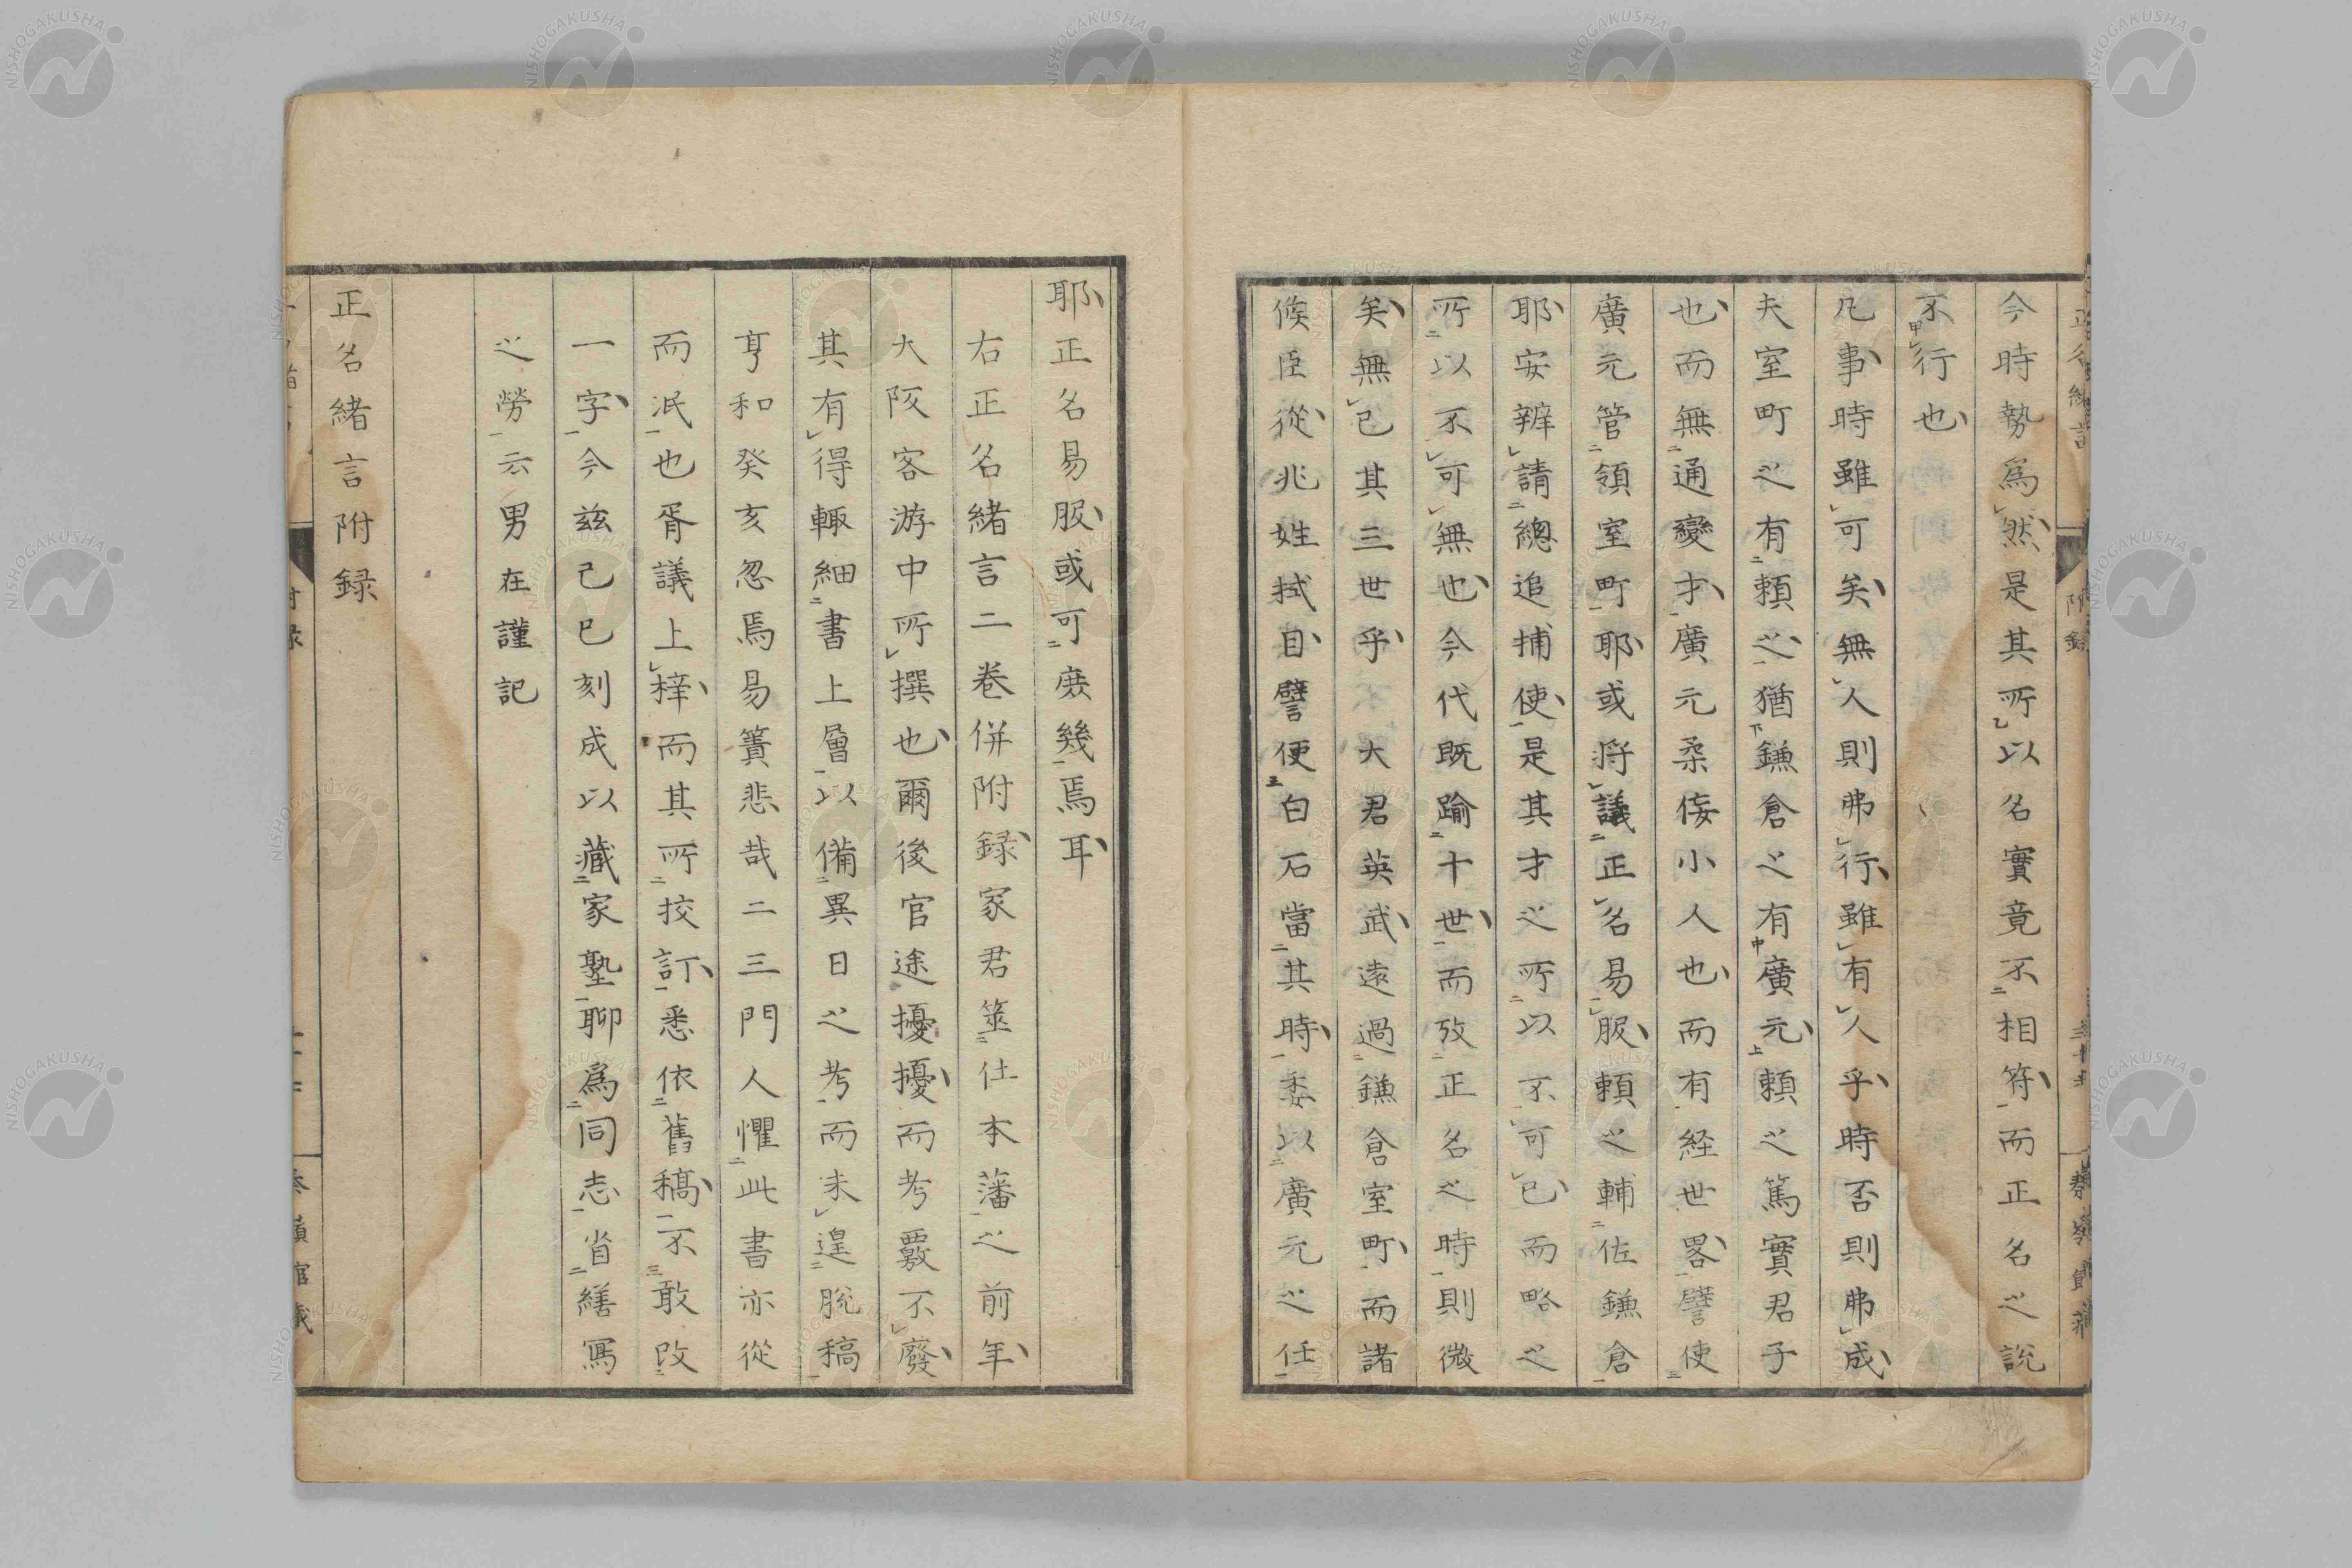 今時勢爲然是其所以名實竟不相符而正名之說
不行也
凡事時雖可矣無人則弗行雖有人乎時否則弗成
夫室町之有頼之猶鎌倉之有廣元頼之篤實君子
也而無通變才廣元柔侫小人也而有経世畧譬使
廣元管領室町耶或將議正名易服頼之輔佐鎌倉
耶安辨請總追捕使是其才之所以不可已而略之
所以不可無也今代既踰十世而攷正名之時則微
矣無已其三世乎大君英武遠過鎌倉室町而諸
候臣從兆姓拭目譬使白石當其時委以廣元之任
耶正名易服或可庻幾焉耳
右正名緒言二卷併附録家君筮仕本藩之前年
大阪客游中所撰也爾後官途擾擾而考覈不廢
其有得輙細書上層以備異日之考而未遑脫稿
亨和癸亥忽焉易簀悲哉二三門人懼此書亦從
而泯也胥議上梓而其所挍訂悉依舊稿不敢改
一字今茲己巳刻成以藏家塾聊爲同志省繕寫
之勞云男在謹記
正名緒言附録
NISHOGAKUSHA